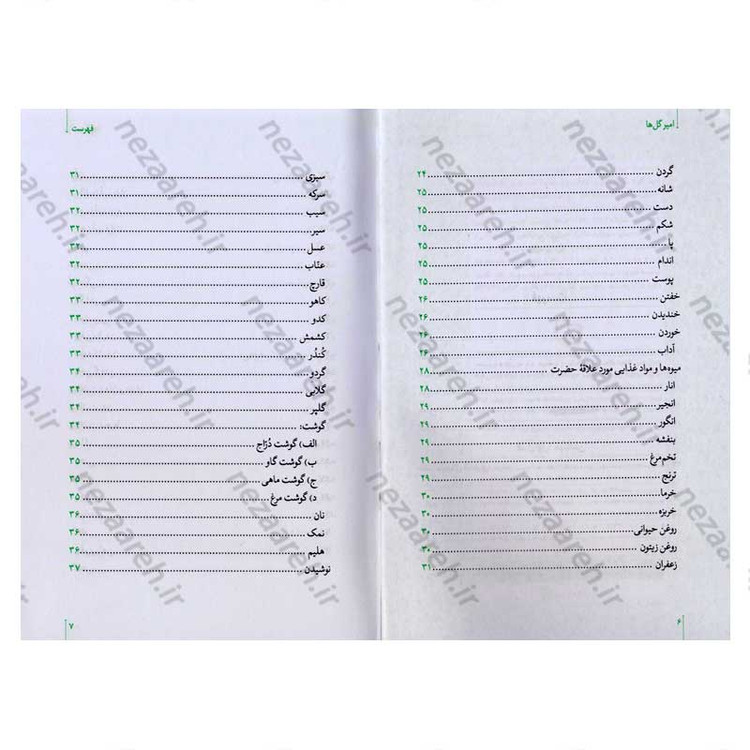 امیر گل‌ها
گردن ........ ۲۴
شانه ........ ۲۵
دست ........ ۲۵
شکم ........ ۲۵
پا ........ ۲۵
اندام ........ ۲۵
پوست ........ ۲۵
خفتن ........ ۲۶
خندیدن ........ ۲۶
خوردن ........ ۲۶
آداب ........ ۲۶
میوه‌ها و مواد غذایی مورد علاقهٔ حضرت ........ ۲۸
انار ........ ۲۸
انجیر ........ ۲۹
انگور ........ ۲۹
بنفشه ........ ۲۹
تخم‌مرغ ........ ۲۹
ترنج ........ ۲۹
خرما ........ ۳۰
خربزه ........ ۳۰
روغن حیوانی ........ ۳۰
روغن زیتون ........ ۳۰
زعفران ........ ۳۱
۶
فهرست
سبزی ........ ۳۱
سرکه ........ ۳۱
سیب ........ ۳۲
سیر ........ ۳۲
عسل ........ ۳۲
عنّاب ........ ۳۲
قارچ ........ ۳۲
کاهو ........ ۳۳
کدو ........ ۳۳
کشمش ........ ۳۳
کُندُر ........ ۳۳
گردو ........ ۳۴
گلابی ........ ۳۴
گلپر ........ ۳۴
گوشت: ........ ۳۴
الف) گوشت دُرّاج ........ ۳۵
ب) گوشت گاو ........ ۳۵
ج) گوشت ماهی ........ ۳۵
د) گوشت مرغ ........ ۳۵
نان ........ ۳۶
نمک ........ ۳۶
هلیم ........ ۳۶
نوشیدن ........ ۳۷
۷
nezaareh.ir